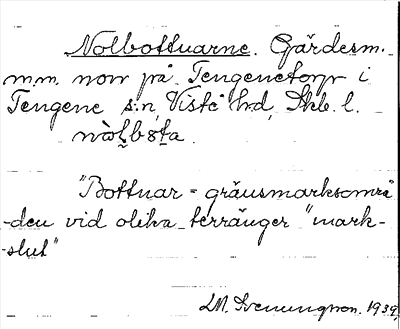 Nolbottnarne. Gärdesm.
m.m. norr på Tengenetorp i
Tengene s:n, Viste hd, Skb. l.
nòḷbǒta.
"Bottnar = gränsmarksområ
-den vid olika terränger "mark-
-slut"
LM. Svenungsson. 1939.